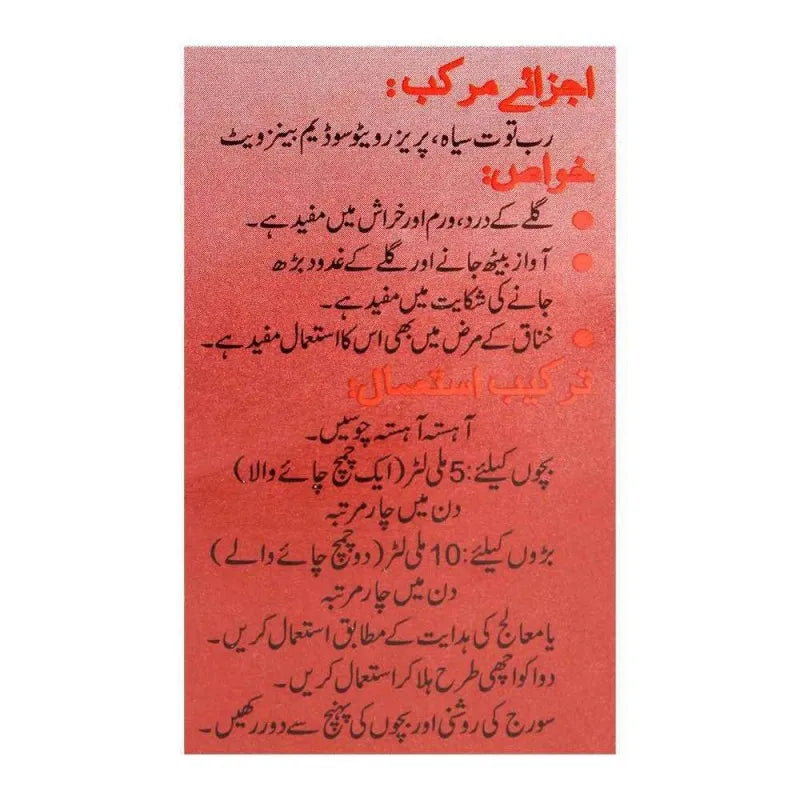 اجزائے مرکب:
رب توت سیاہ، پریزرویٹو سوڈیم بینزویٹ
خواص:
● گلے کے درد، ورم اور خراش میں مفید ہے۔
● آواز بیٹھ جانے اور گلے کے غدود بڑھ
جانے کی شکایت میں مفید ہے۔
● خناق کے مرض میں بھی اس کا استعمال مفید ہے۔
ترکیب استعمال:
آہستہ آہستہ چوسیں۔
بچوں کیلئے: 5 ملی لٹر (ایک چمچ چائے والا)
دن میں چار مرتبہ
بڑوں کیلئے: 10 ملی لٹر (دو چمچ چائے والے)
دن میں چار مرتبہ
یا معالج کی ہدایت کے مطابق استعمال کریں۔
دوا کو اچھی طرح ہلا کر استعمال کریں۔
سورج کی روشنی اور بچوں کی پہنچ سے دور رکھیں۔